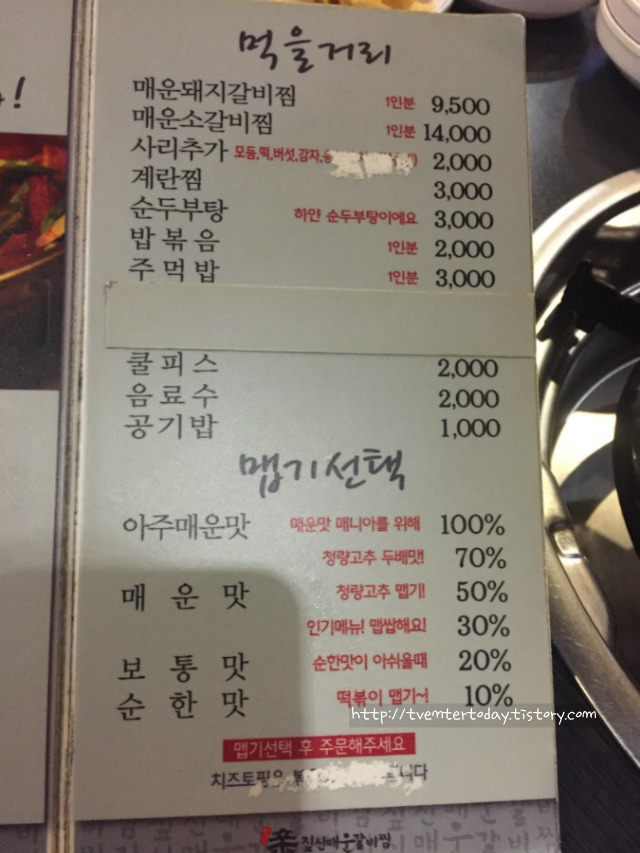 먹을거리
매운돼지갈비찜 1인분 9,500
매운소갈비찜 1인분 14,000
사리추가 모듬,떡,버섯,감자, 2,000
계란찜 3,000
순두부탕 하얀 순두부탕이에요 3,000
밥볶음 1인분 2,000
주먹밥 1인분 3,000
쿨피스 2,000
음료수 2,000
공기밥 1,000
맵기선택
아주매운맛 매운맛 매니아를 위해 100%
청량고추 두배맷! 70%
매운맛 청량고추 맵기! 50%
인기메뉴! 맵쌉해요! 30%
보통맛 순한맛이 아쉬울때 20%
순한맛 떡볶이 맵기~! 10%
http://tventertoday.tistory.com
맵기선택 후 주문해주세요
치즈토핑은
니다
매운갈비찜